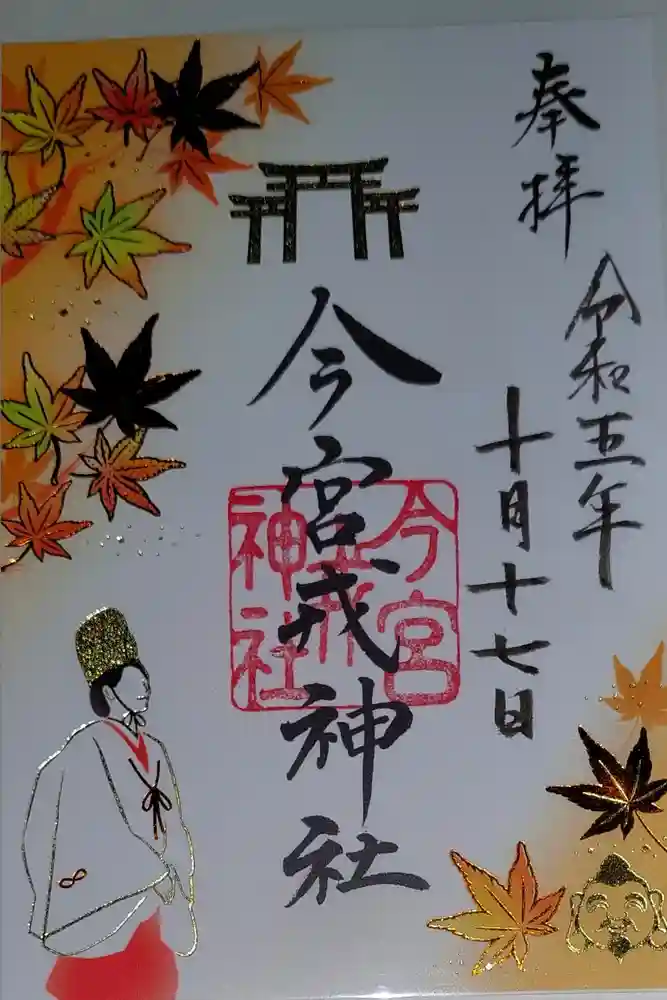 奉拝
令和五年
十月十七日
今宮戎神社
今宮
戎
神社